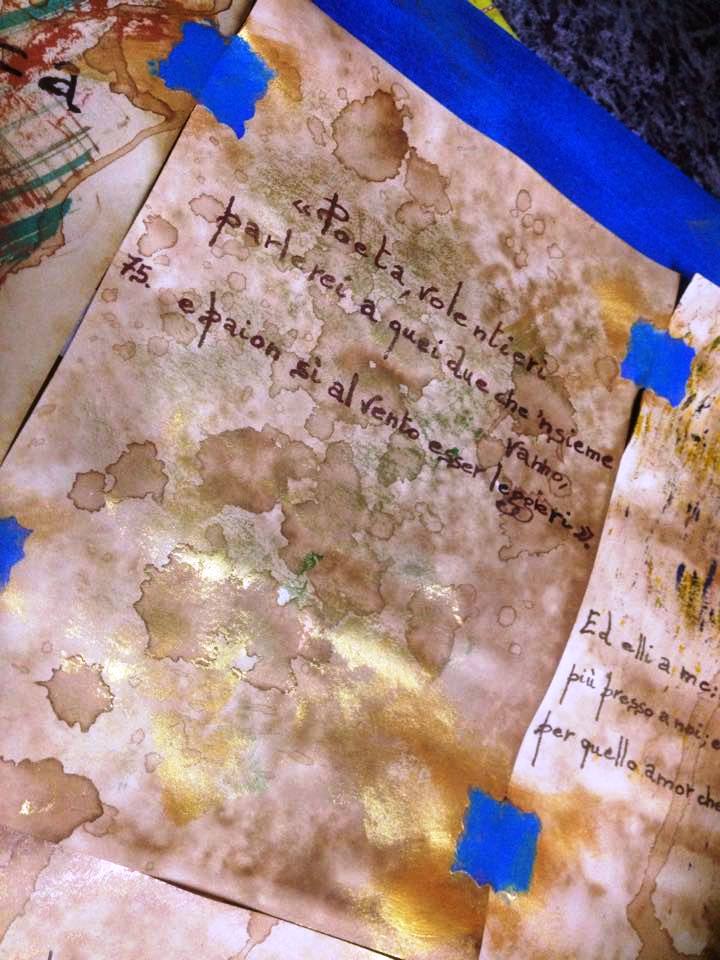 «Poeta, volentieri
parlerei a quei due che 'nsieme
vanno,
75. e paion sì al vento esser leggeri».
Ed elli a me:
più presso a noi; e
per quello amor che